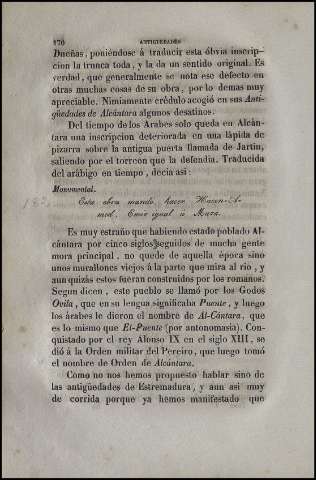 170 ANTIGÜEDADES
Dueñas, poniéndose á traducir esta óbvia inscrip-
cion la trunca toda, y la da un sentido original. Es
verdad, que generalmente se nota ese defecto en
otras muchas cosas de su obra, por lo demas muy
apreciable. Nimiamente crédulo acogió en sus Anti-
güedades de Alcántara algunos desatinos.
Del tiempo de los Arabes solo queda en Alcán-
tara una inscripcion deteriorada en una lápida de
pizarra sobre la antigua puerta llamada de Jartin,
saliendo por el torreon que la defendia. Traducida
del arábigo en tiempo, decia asi:
Monumental.
Esta obra mandó hacer Hacen-A-
med, Emir igual á Muza.
Es muy estraño que habiendo estado poblado Al-
cántara por cinco siglos seguidos de mucha gente
mora principal, no quede de aquella época sino
unos murallones viejos á la parte que mira al rio, y
aun quizás estos fueran construidos por los romanos.
Segun dicen, este pueblo se llamó por los Godos
Ovila, que en su lengua significaba Puente, y luego
los árabes le dieron el nombre de Al-Cántara, que
es lo mismo que El-Puente (por antonomasia). Con-
quistado por el rey Alfonso IX en el siglo XIII, se
dió á la Orden militar del Pereiro, que luego tomó
el nombre de Orden de Alcántara.
Como no nos hemos propuesto hablar sino de
las antigüedades de Estremadura, y aun asi muy
de corrida porque ya hemos manifestado que